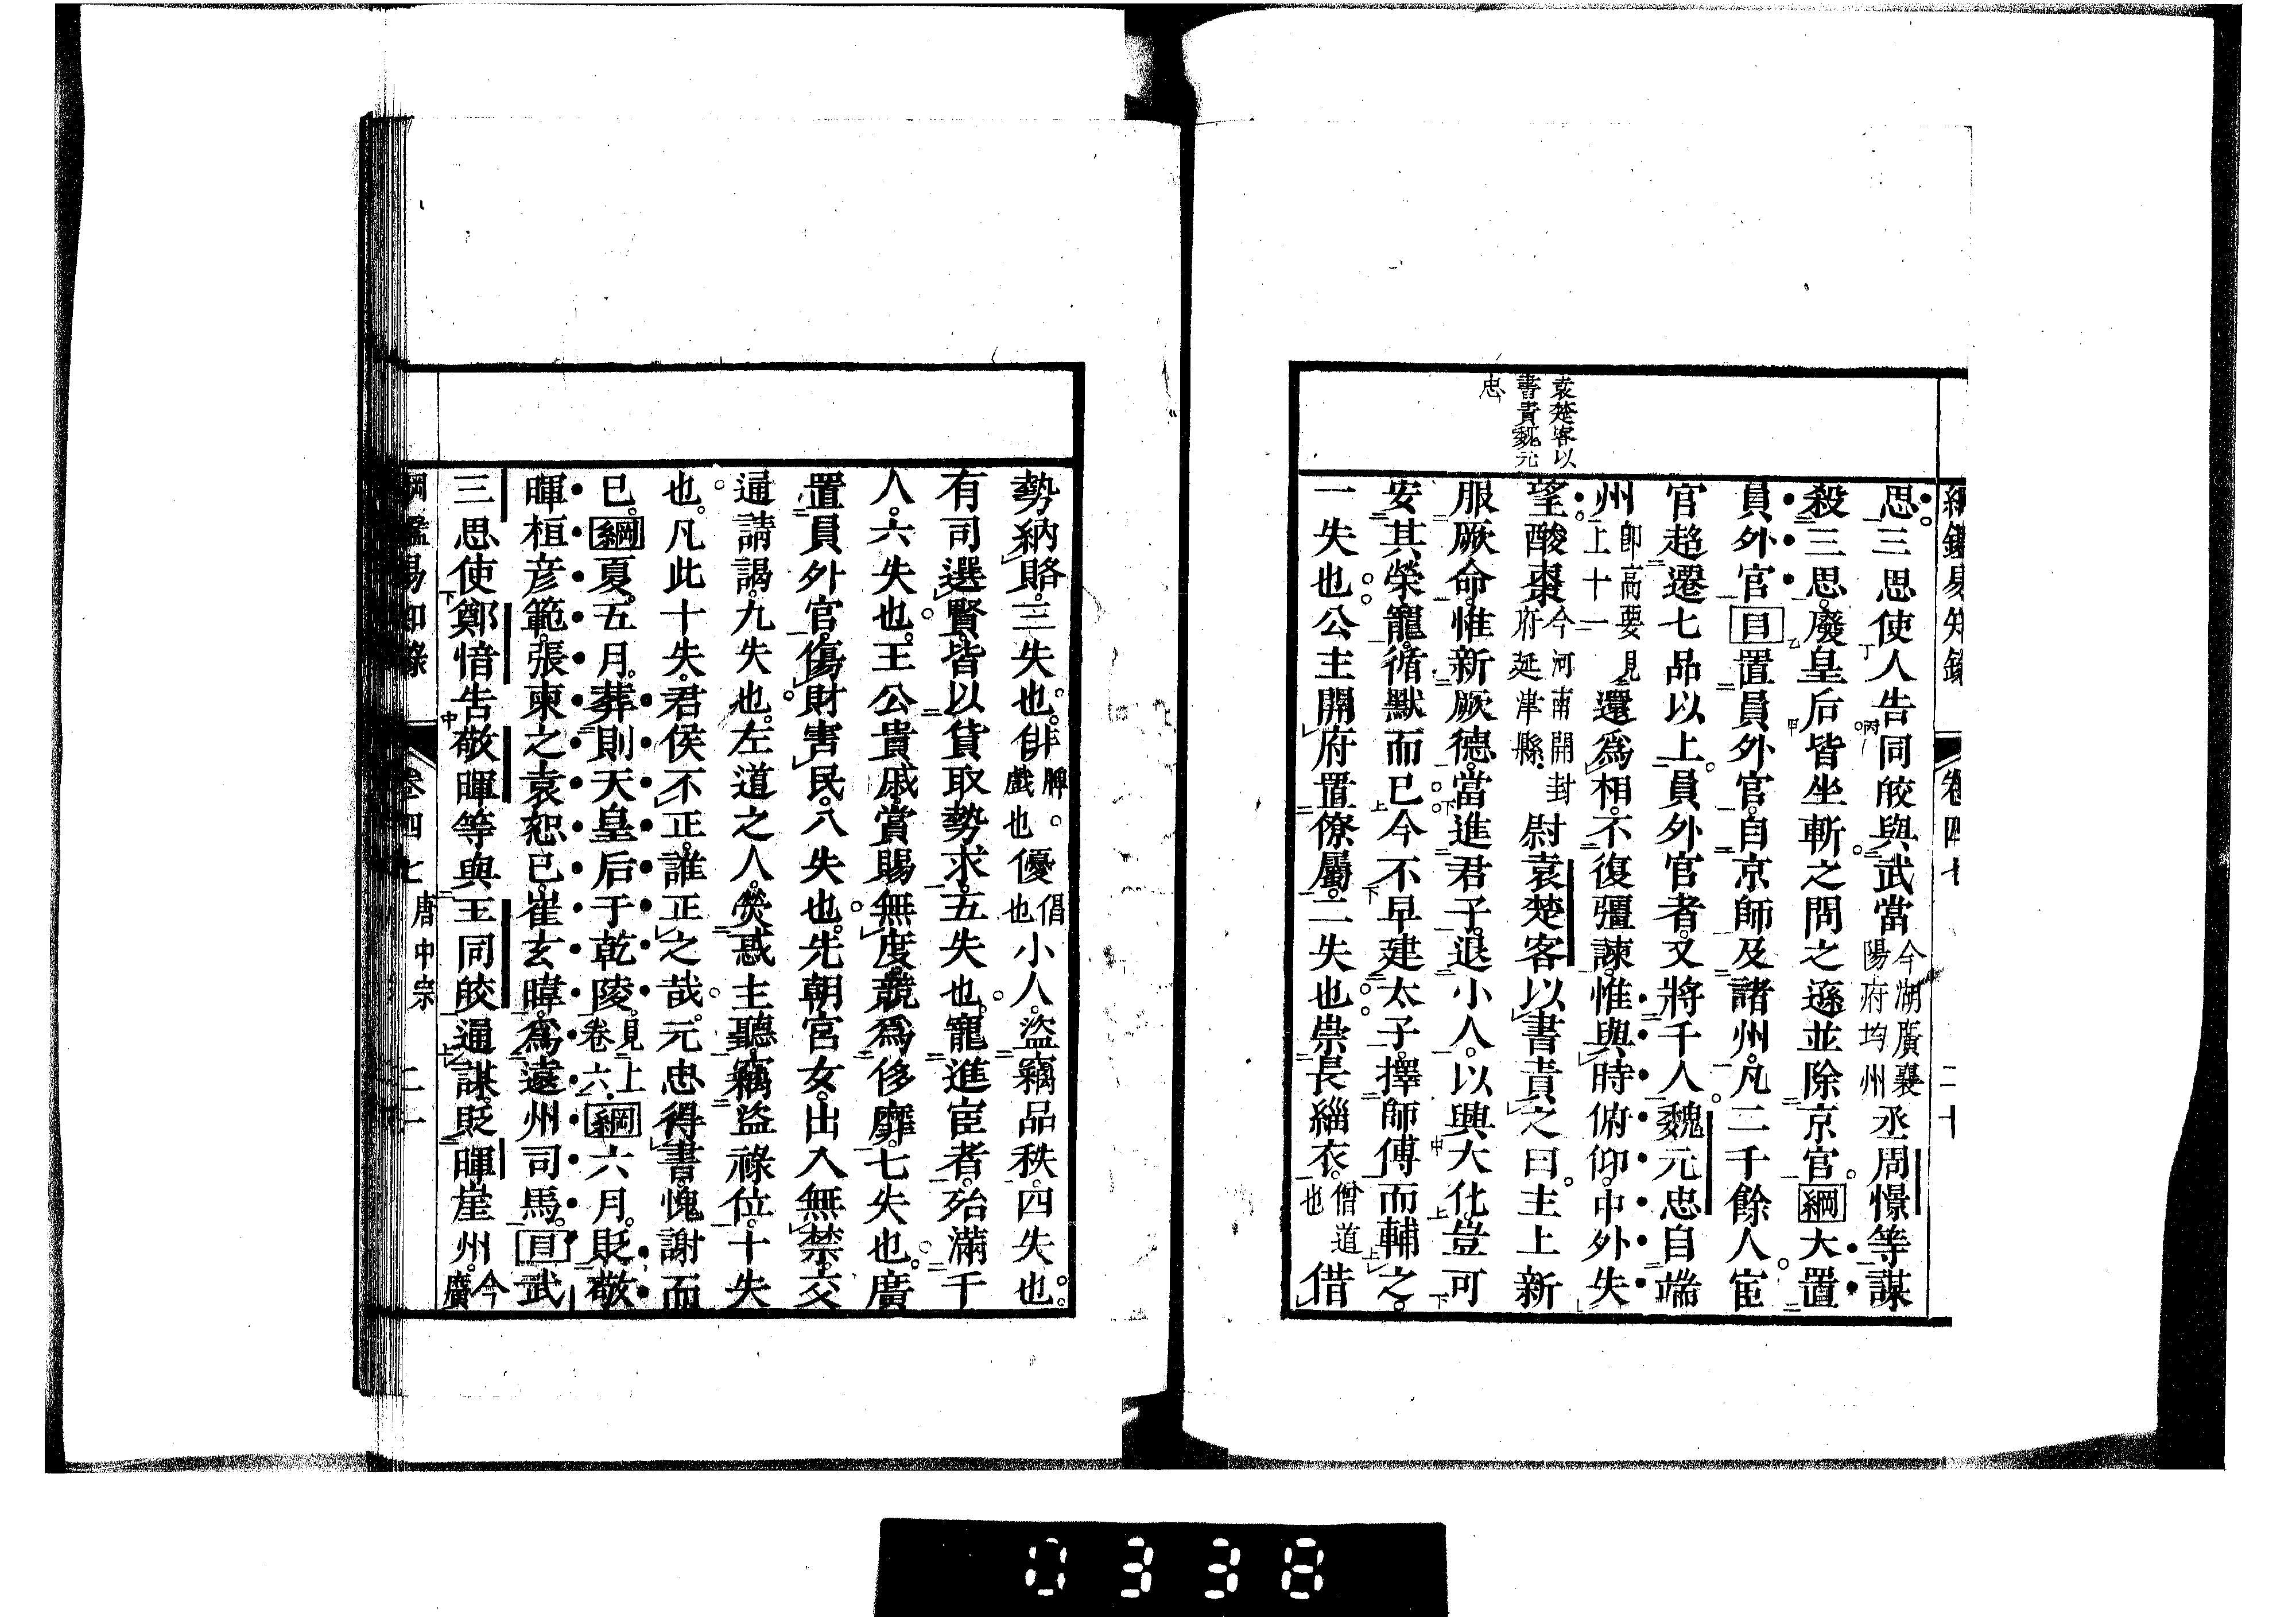 綱鑑易知録 卷四十七 二十
袁楚客以
書責魏元
忠
思三思使人告同皎與武當今湖廣襄陽府均州丞周憬等謀
殺三思廢皇后皆坐斬之問之遜並除京官綱大置
員外官目置員外官自京師及諸州凡二千餘人宦
官超遷七品以上員外官者又將千人魏元忠自端
州即高要見上十一還爲相不復彊諫惟與時俯仰中外失
望酸棗今河南開封府延津縣尉袁楚客以書責之曰主上新
服厥命惟新厥德當進君子退小人以興大化豈可
安其榮寵循默而已今不早建太子擇師傅而輔之
一失也公主開府置僚屬二失也崇長緇衣僧道也借
勢納賂三失也俳牌。戲也優倡也小人盜竊品秩四失也
有司選賢皆以貨取勢求五失也寵進宦者殆滿千
人六失也王公貴戚賞賜無度競爲侈靡七失也廣
置員外官傷財害民八失也先朝宮女出入無禁交
通請謁九失也左道之人熒惑主聽竊盜祿位十失
也凡此十失君侯不正誰正之哉元忠得書愧謝而
已綱夏五月葬則天皇后于乾陵見上卷六綱六月貶敬
暉桓彦範張柬之袁恕已崔玄暐爲遠州司馬目武
三思使鄭愔告敬暉等與王同皎通謀貶暉崖州今廣
綱鑑易知錄 卷四七 唐中宗 二十一
0338